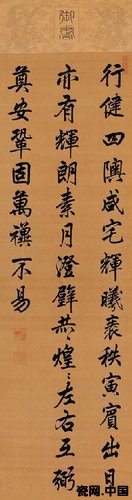 御書
行健四隩咸宅輝曦表秩寅賓出日
亦有輝朗素月澄璧共〻煌〻左右互弼
奠安鞏固萬禩不易
瓷网.中国